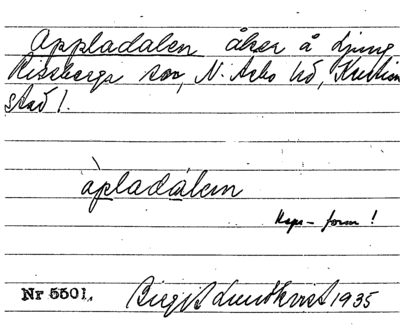 Appladalen åker å Ljung
Rissberga sn, N. Åsbo hd, Kristian
stad l.
àpladálen
Uppr – form!
Nr 5501. Birgit Lundkvist 1935